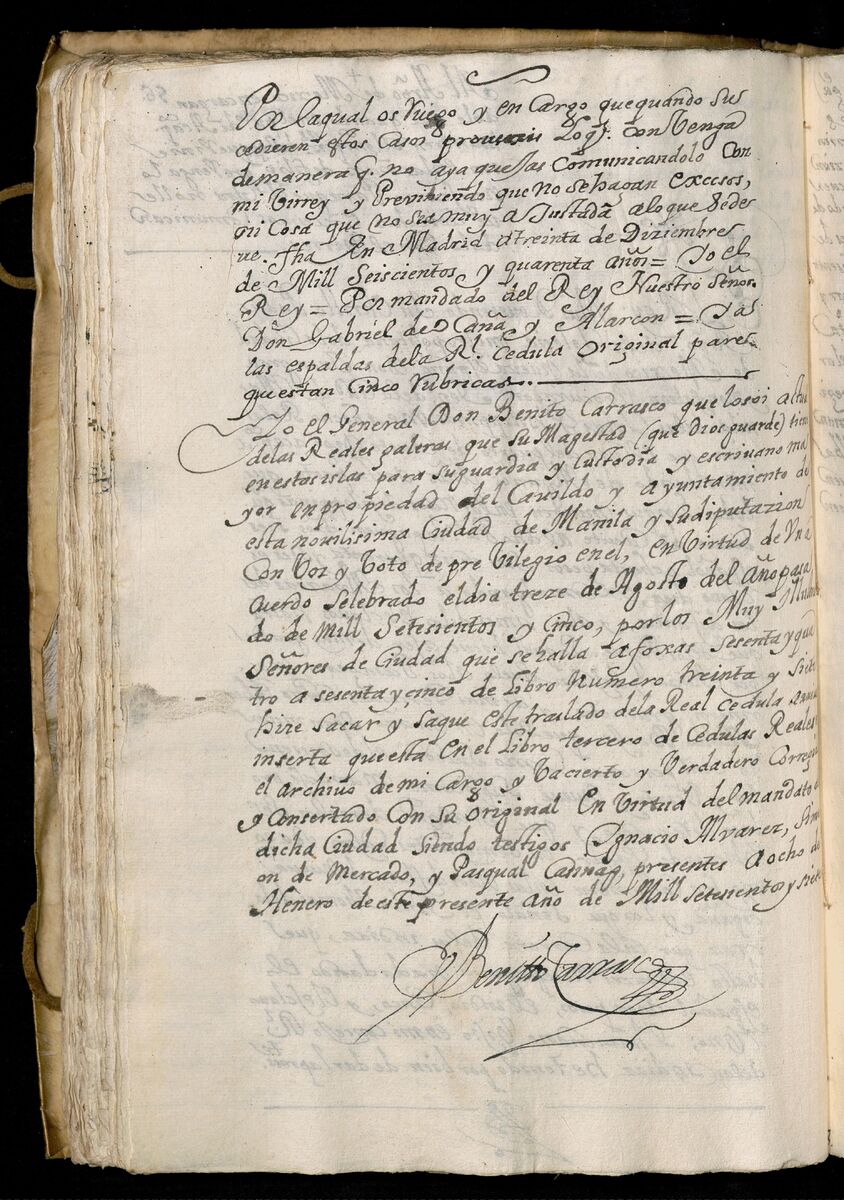 Por la qual os Ruego y en Cargo que quando sus
cedieren estos Casos proveais Loq.^e con Venga
demanera q. no aya quejas Comunicandolo Con
mi Virrey y Previniendo que no se hagan excesos,
ni Cosa que no sea muy a Justada alo que sede
ve. fha En Madrid a treinta de Diziembre
de Mill Seiscientos y quarenta años = Jo el
Rey = Por mandado del Rey Nuestro Señor
Don Gabriel de Ocaña y Alarcon = Jas
las espaldas dela Rl. Cedula Original pares
que estan Cinco Rubricas..
Jo el General Don Benito Carrasco que losoi actual
delas Reales galeras que su Magestad (que Dios guarde) tiene
en estos islas para suguardia y Custodia y escrivano ma
yor en propiedad del Cavildo y ayuntamiento de
esta novilisima Ciudad de Manila y sudiputazion
Con Voz y Voto de pre Vilegio en el, en Virtud de Vn a
Cuerdo Selebrado el dia treze de Agosto del Año pasa
do de Mill Setesientos y Cinco, por los Muy Illustres
Señores de Ciudad que se halla a foxas sesenta y qua
tro a sesenta y cinco de Libro Numero treinta y siete
hize Sacar y Saque este traslado dela Real Cedula
inserta que esta En el Libro tercero de Cedulas Reales
el archivo de mi Cargo y Vacierto y Verdadero Corregido
y Consertado Con su original En Virtud del mandato
dicha Ciudad siendo testigos Ignacio Alvarez, Sim
on de Mercado, y Pasqual Carinag, presentes a ocho de
Henero de este presente año de Mill Setesientos y siete
Benito Carrasco